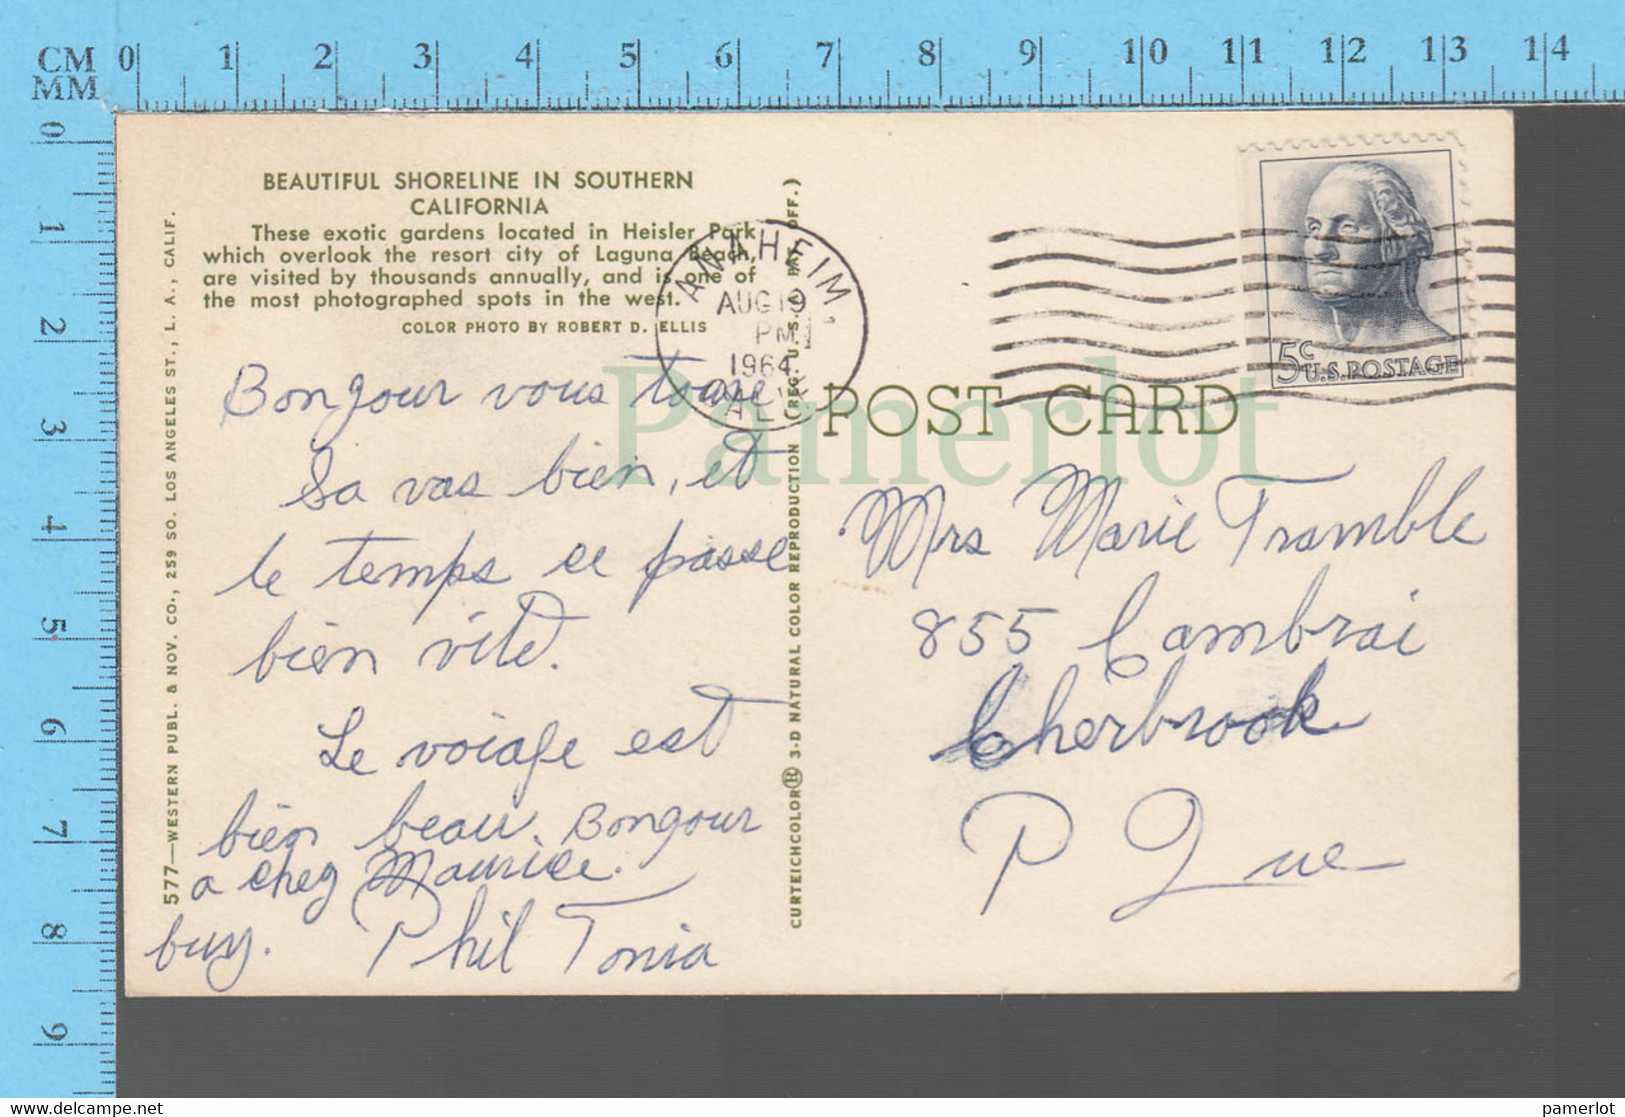 CM 0 1 2 3 4 5 6 7 8 9 10 11 12 13 14
MM
0
1
2
3
4
5
6
7
8
9
BEAUTIFUL SHORELINE IN SOUTHERN
CALIFORNIA
These exotic gardens located in Heisler Park
which overlook the resort city of Laguna Beach,
are visited by thousands annually, and is one of
the most photographed spots in the west.
COLOR PHOTO BY ROBERT D. ELLIS
577—WESTERN PUBL. & NOV. CO., 259 SO. LOS ANGELES ST., L. A., CALIF.
Bonjour vous
Sa vas bien, et
le temps ce passe
bien vite.
Le voiage est
bien beau. Bongour
a chez Maurice.
buy. Phil Tonia
CURTEICHCOLOR® 3-D NATURAL COLOR REPRODUCTION (REG. U.S.A. PAT. OFF.)
ANAHEIM,
AUG 19
PM
1964
CALIF
5c
U.S. POSTAGE
POST CARD
Mrs Marie Tramble
855 Cambrai
Sherbrook
P Que
Pamerlot
pamerlot